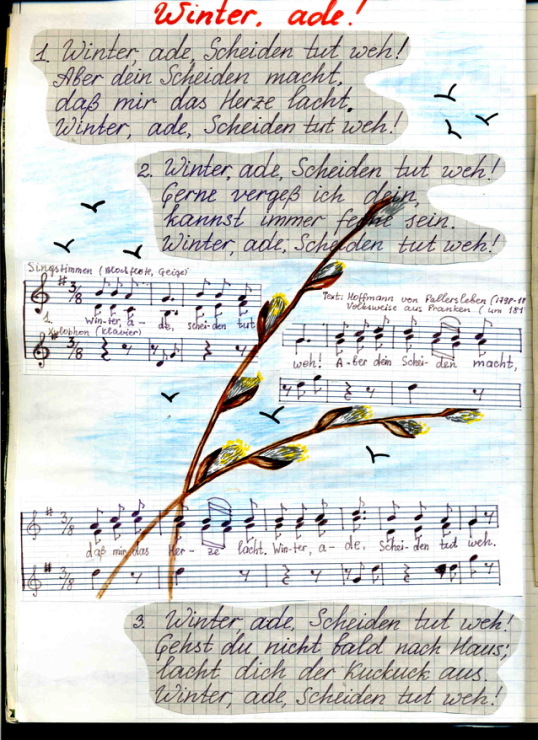 Winter, ade!
1. Winter, ade, Scheiden tut weh!
Aber dein Scheiden macht,
daß mir das Herze lacht.
Winter, ade, Scheiden tut weh!
2. Winter, ade, Scheiden tut weh!
Gerne vergeß ich dein,
kannst immer ferne sein.
Winter, ade, Scheiden tut weh!
Singstimmen (Blockflöte, Geige)
3/8
1. Win-ter, a - de, schei-den tut
Xylophon (Klavier)
3/8
Text: Hoffmann von Fallersleben (1798-18
Volksweise aus Franken (um 181
weh! A-ber dein Schei-den macht,
3/8
daß mir das Her-ze lacht. Win-ter, a-de, Schei-den tut weh.
3/8
3. Winter, ade, Scheiden tut weh!
Gehst du nicht bald nach Haus,
lacht dich der Kuckuck aus.
Winter, ade, Scheiden tut weh!